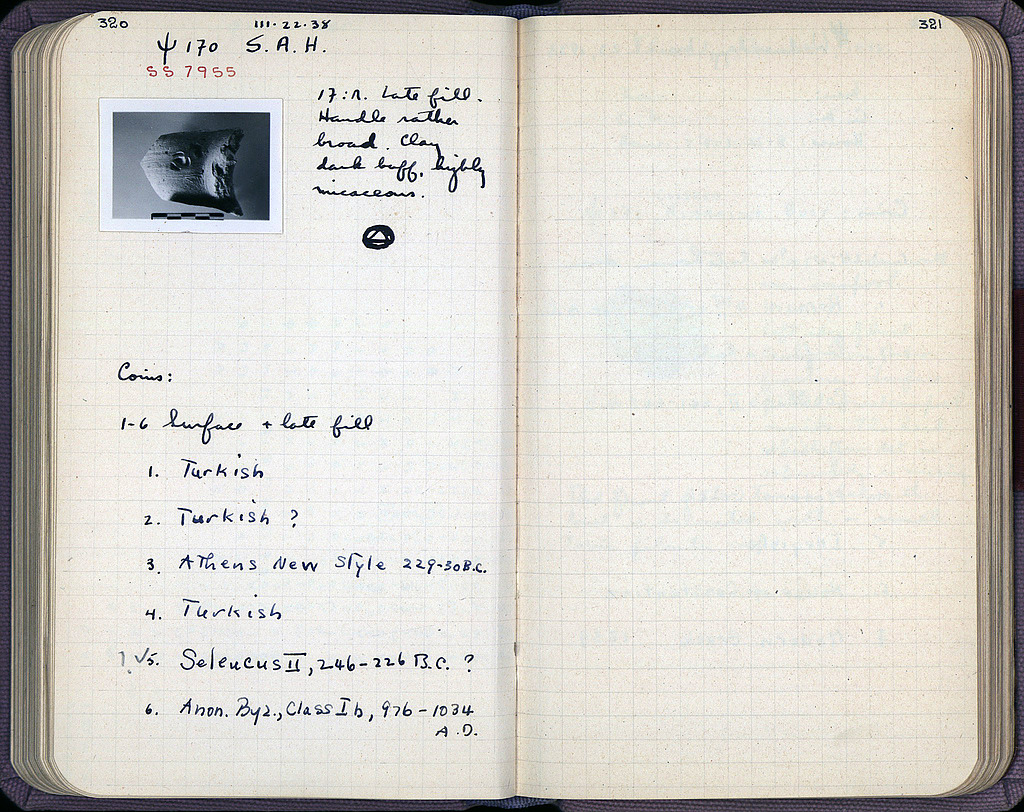 320
III·22·38
Ψ 170 S.A.H.
SS 7955
Late fill.
Handle rather
broad. Clay
dark buff, highly
micaceous.
Coins:
1-6 Surface + late fill
1. Turkish
2. Turkish ?
3. Athens New Style 229-30 B.C.
4. Turkish
? ✓5. Seleucus II, 246-226 B.C. ?
6. Anon. Byz., Class I b, 976-1034
A.D.
321